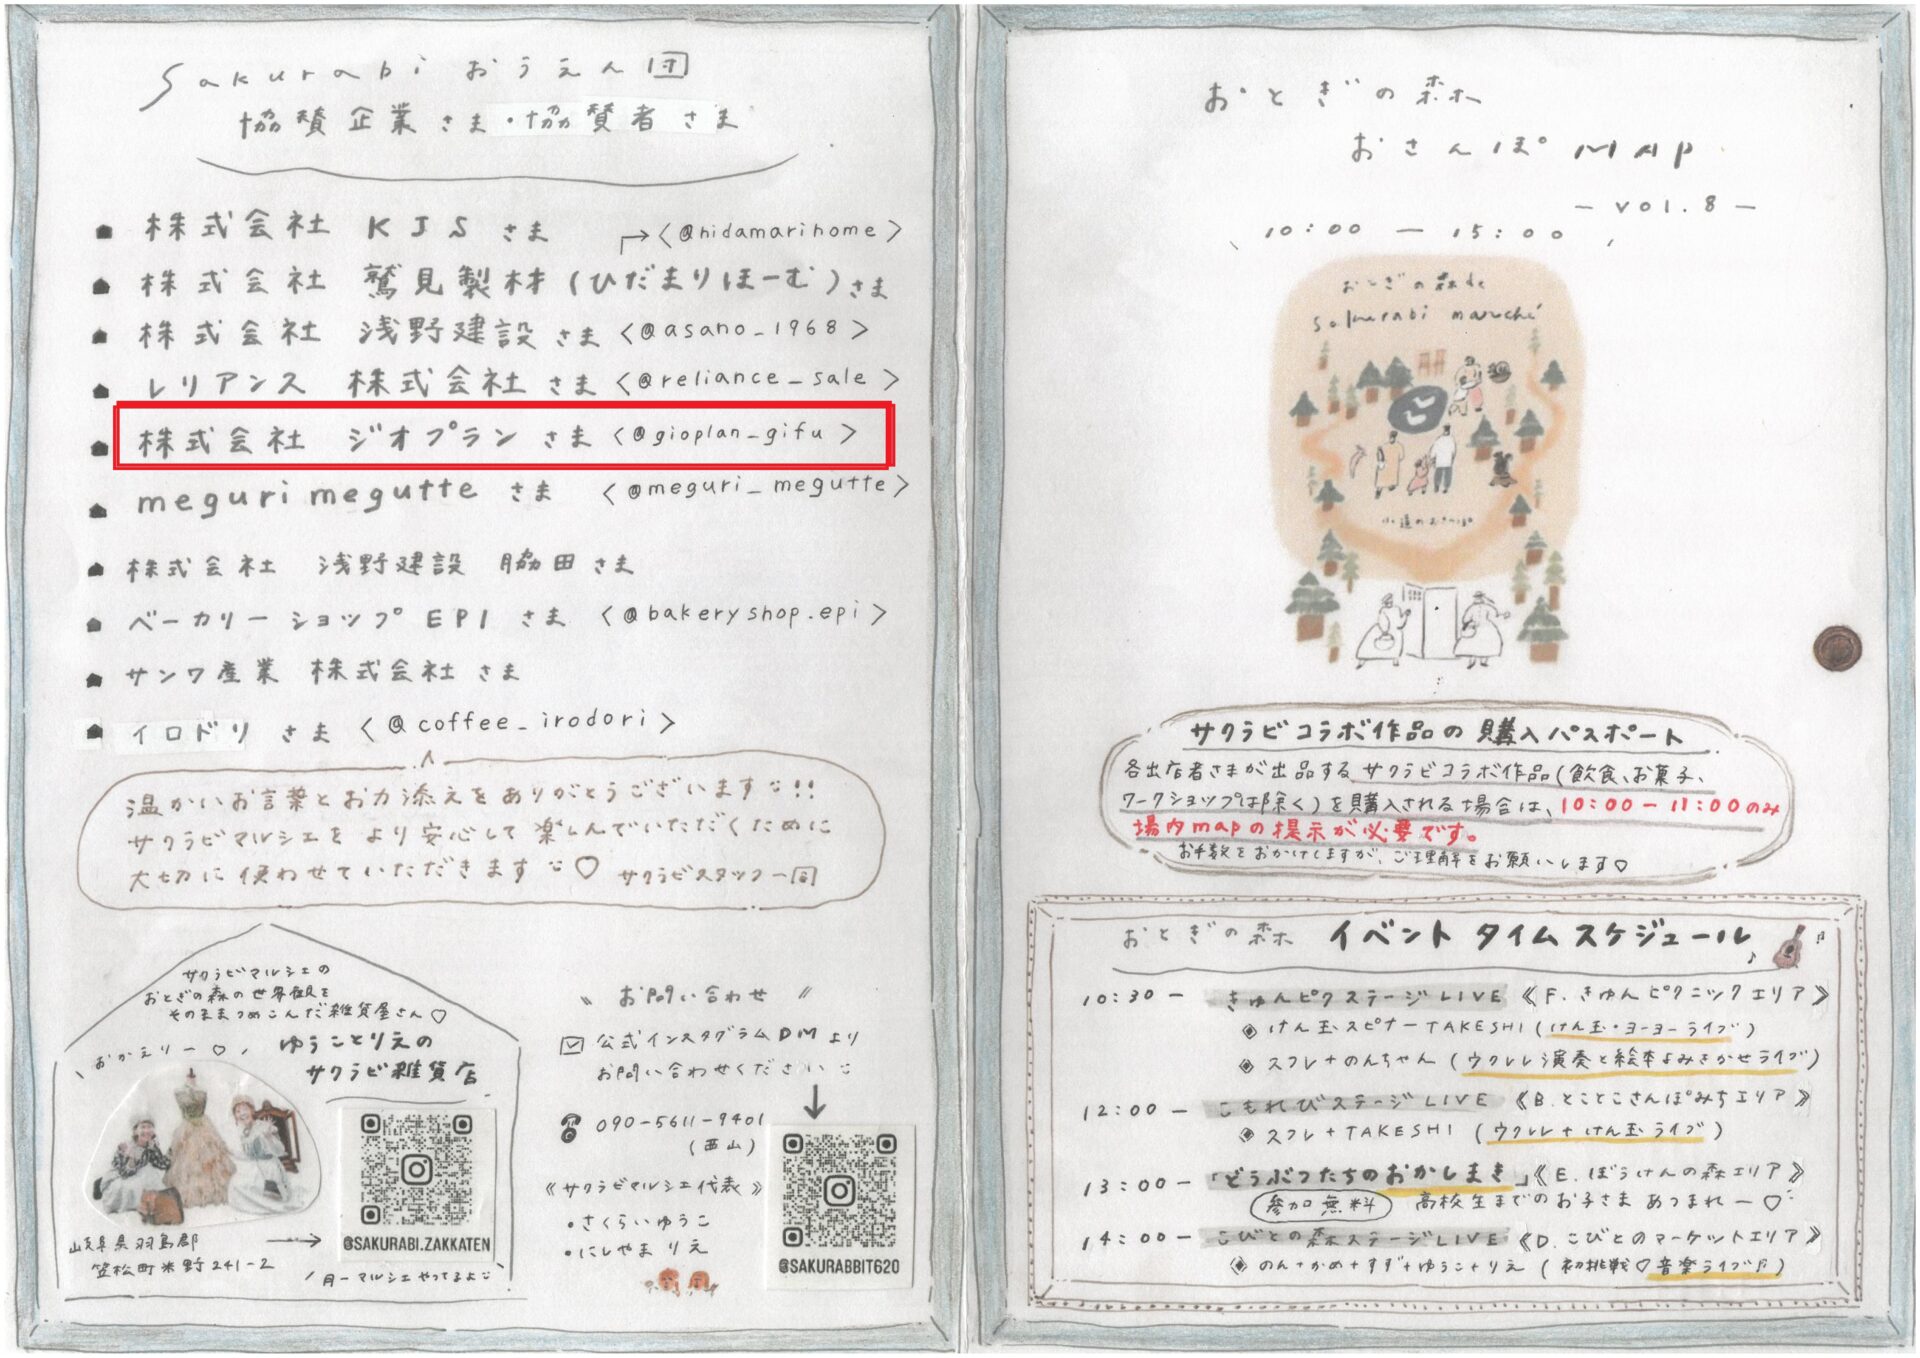 Sakurabi おうえん団
協賛企業さま・協賛者さま
株式会社 KJS さま
<@hidamarihome>
株式会社 鷲見製材(ひだまりほーむ)さま
株式会社 浅野建設 さま <@asano_1968>
レリアンス 株式会社 さま <@reliance_sale>
株式会社 ジオプラン さま <@gioplan_gifu>
meguri megutte さま <@meguri_megutte>
株式会社 浅野建設 脇田さま
ベーカリーショップ EPI さま <@bakeryshop.epi>
サンワ産業 株式会社 さま
イロドリ さま <@coffee_irodori>
温かいお言葉とお力添えをありがとうございます!!
サクラビマルシェを より安心して楽しんでいただくために
大切に使わせていただきます♡ サクラビスタッフ一同
サクラビマルシェの
おとぎの森の世界観を
そのままつめこんだ雑貨屋さん♡
おかえりー♡
ゆうことりえの
サクラビ雑貨店
@SAKURABI.ZAKKATEN
岐阜県羽島郡
笠松町米野241-2
月一マルシェやってるよ
お問い合わせ
公式インスタグラムDMより
お問い合わせください
090-5611-9401
(西山)
《サクラビマルシェ代表》
・さくらいゆうこ
・にしやま りえ
@SAKURABBIT620
おとぎの森
おさんぽ MAP
- vol.8 -
10:00 - 15:00
おとぎの森de
sakurabi marché
小道のおさんぽ
サクラビコラボ作品の購入パスポート
各出店者さまが出品するサクラビコラボ作品(飲食、お菓子、
ワークショップは除く)を購入される場合は、10:00-11:00のみ
場内mapの提示が必要です。
お手数をおかけしますが、ご理解をお願いします♡
おとぎの森 イベント タイムスケジュール
10:30 - きゅんピクステージLIVE 《F.きゅんピクニックエリア》
◈ けん玉スピナーTAKESHI(けん玉・ヨーヨーライブ)
◈ スフレ+のんちゃん(ウクレレ演奏と絵本よみきかせライブ)
12:00 - こもれびステージLIVE 《B.とことこさんぽみちエリア》
◈ スフレ+TAKESHI (ウクレレ+けん玉ライブ)
13:00-「どうぶつたちのおかしまき」《E.ぼうけんの森エリア》
参加無料 高校生までのお子さま あつまれー♡
14:00 - こびとの森ステージLIVE 《D.こびとのマーケットエリア》
◈ のん+かめ+すず+ゆうこ+りえ (初挑戦♡音楽ライブ♪)